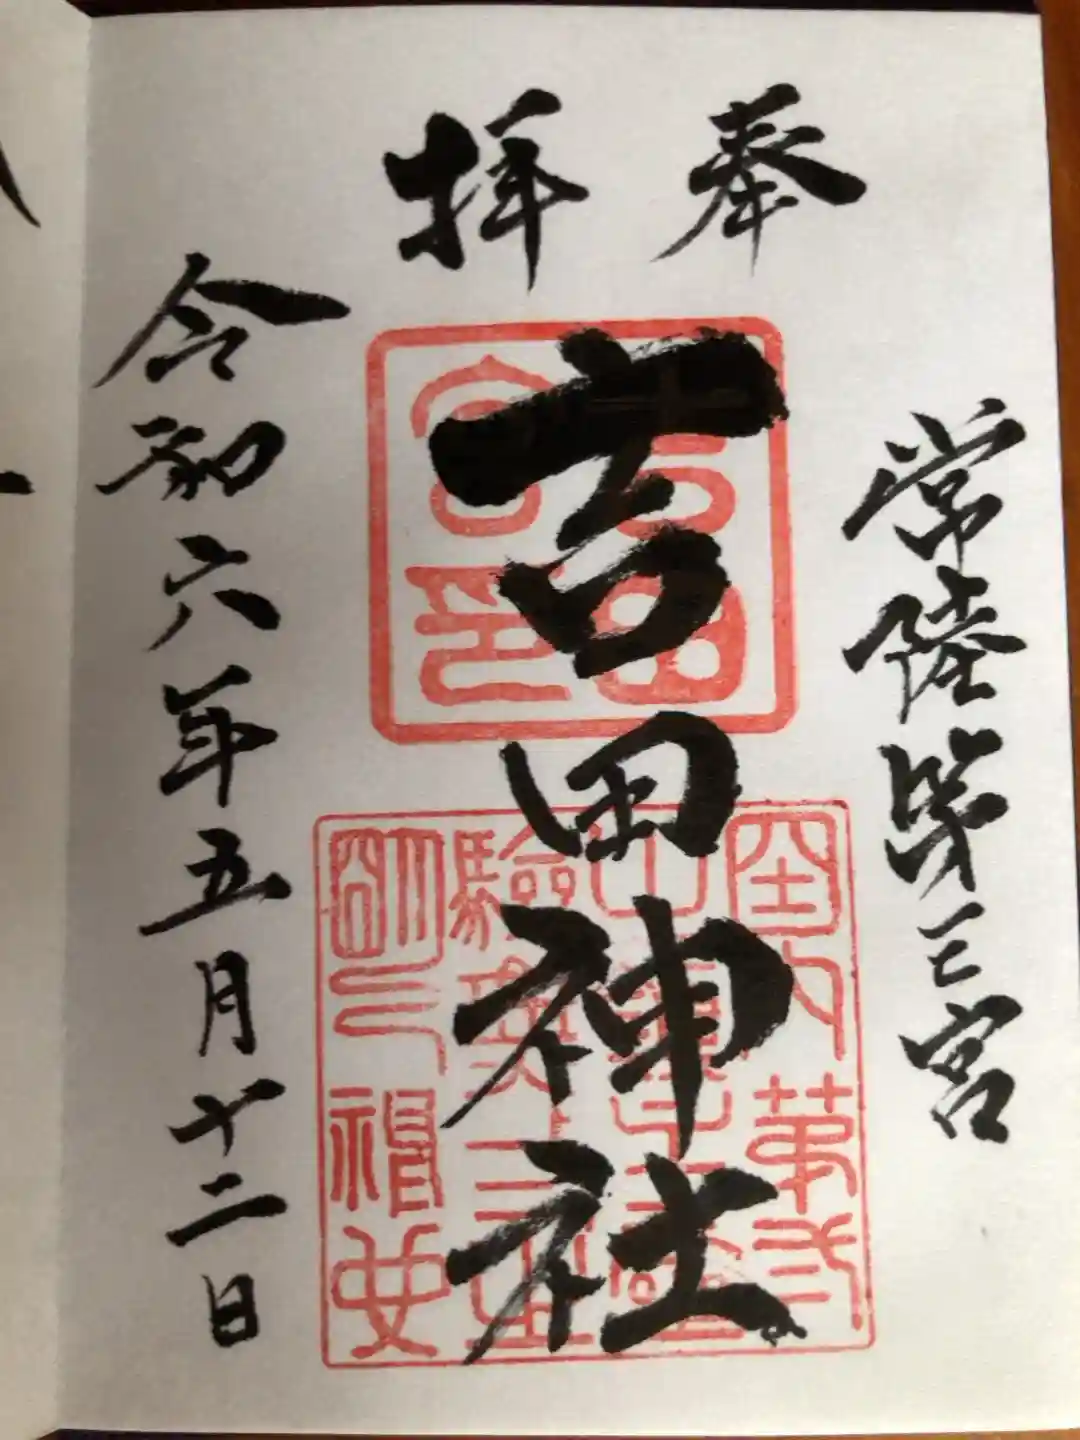 奉拝
常陸第三宮
吉田神社
令和六年五月十二日
吉田
宮印